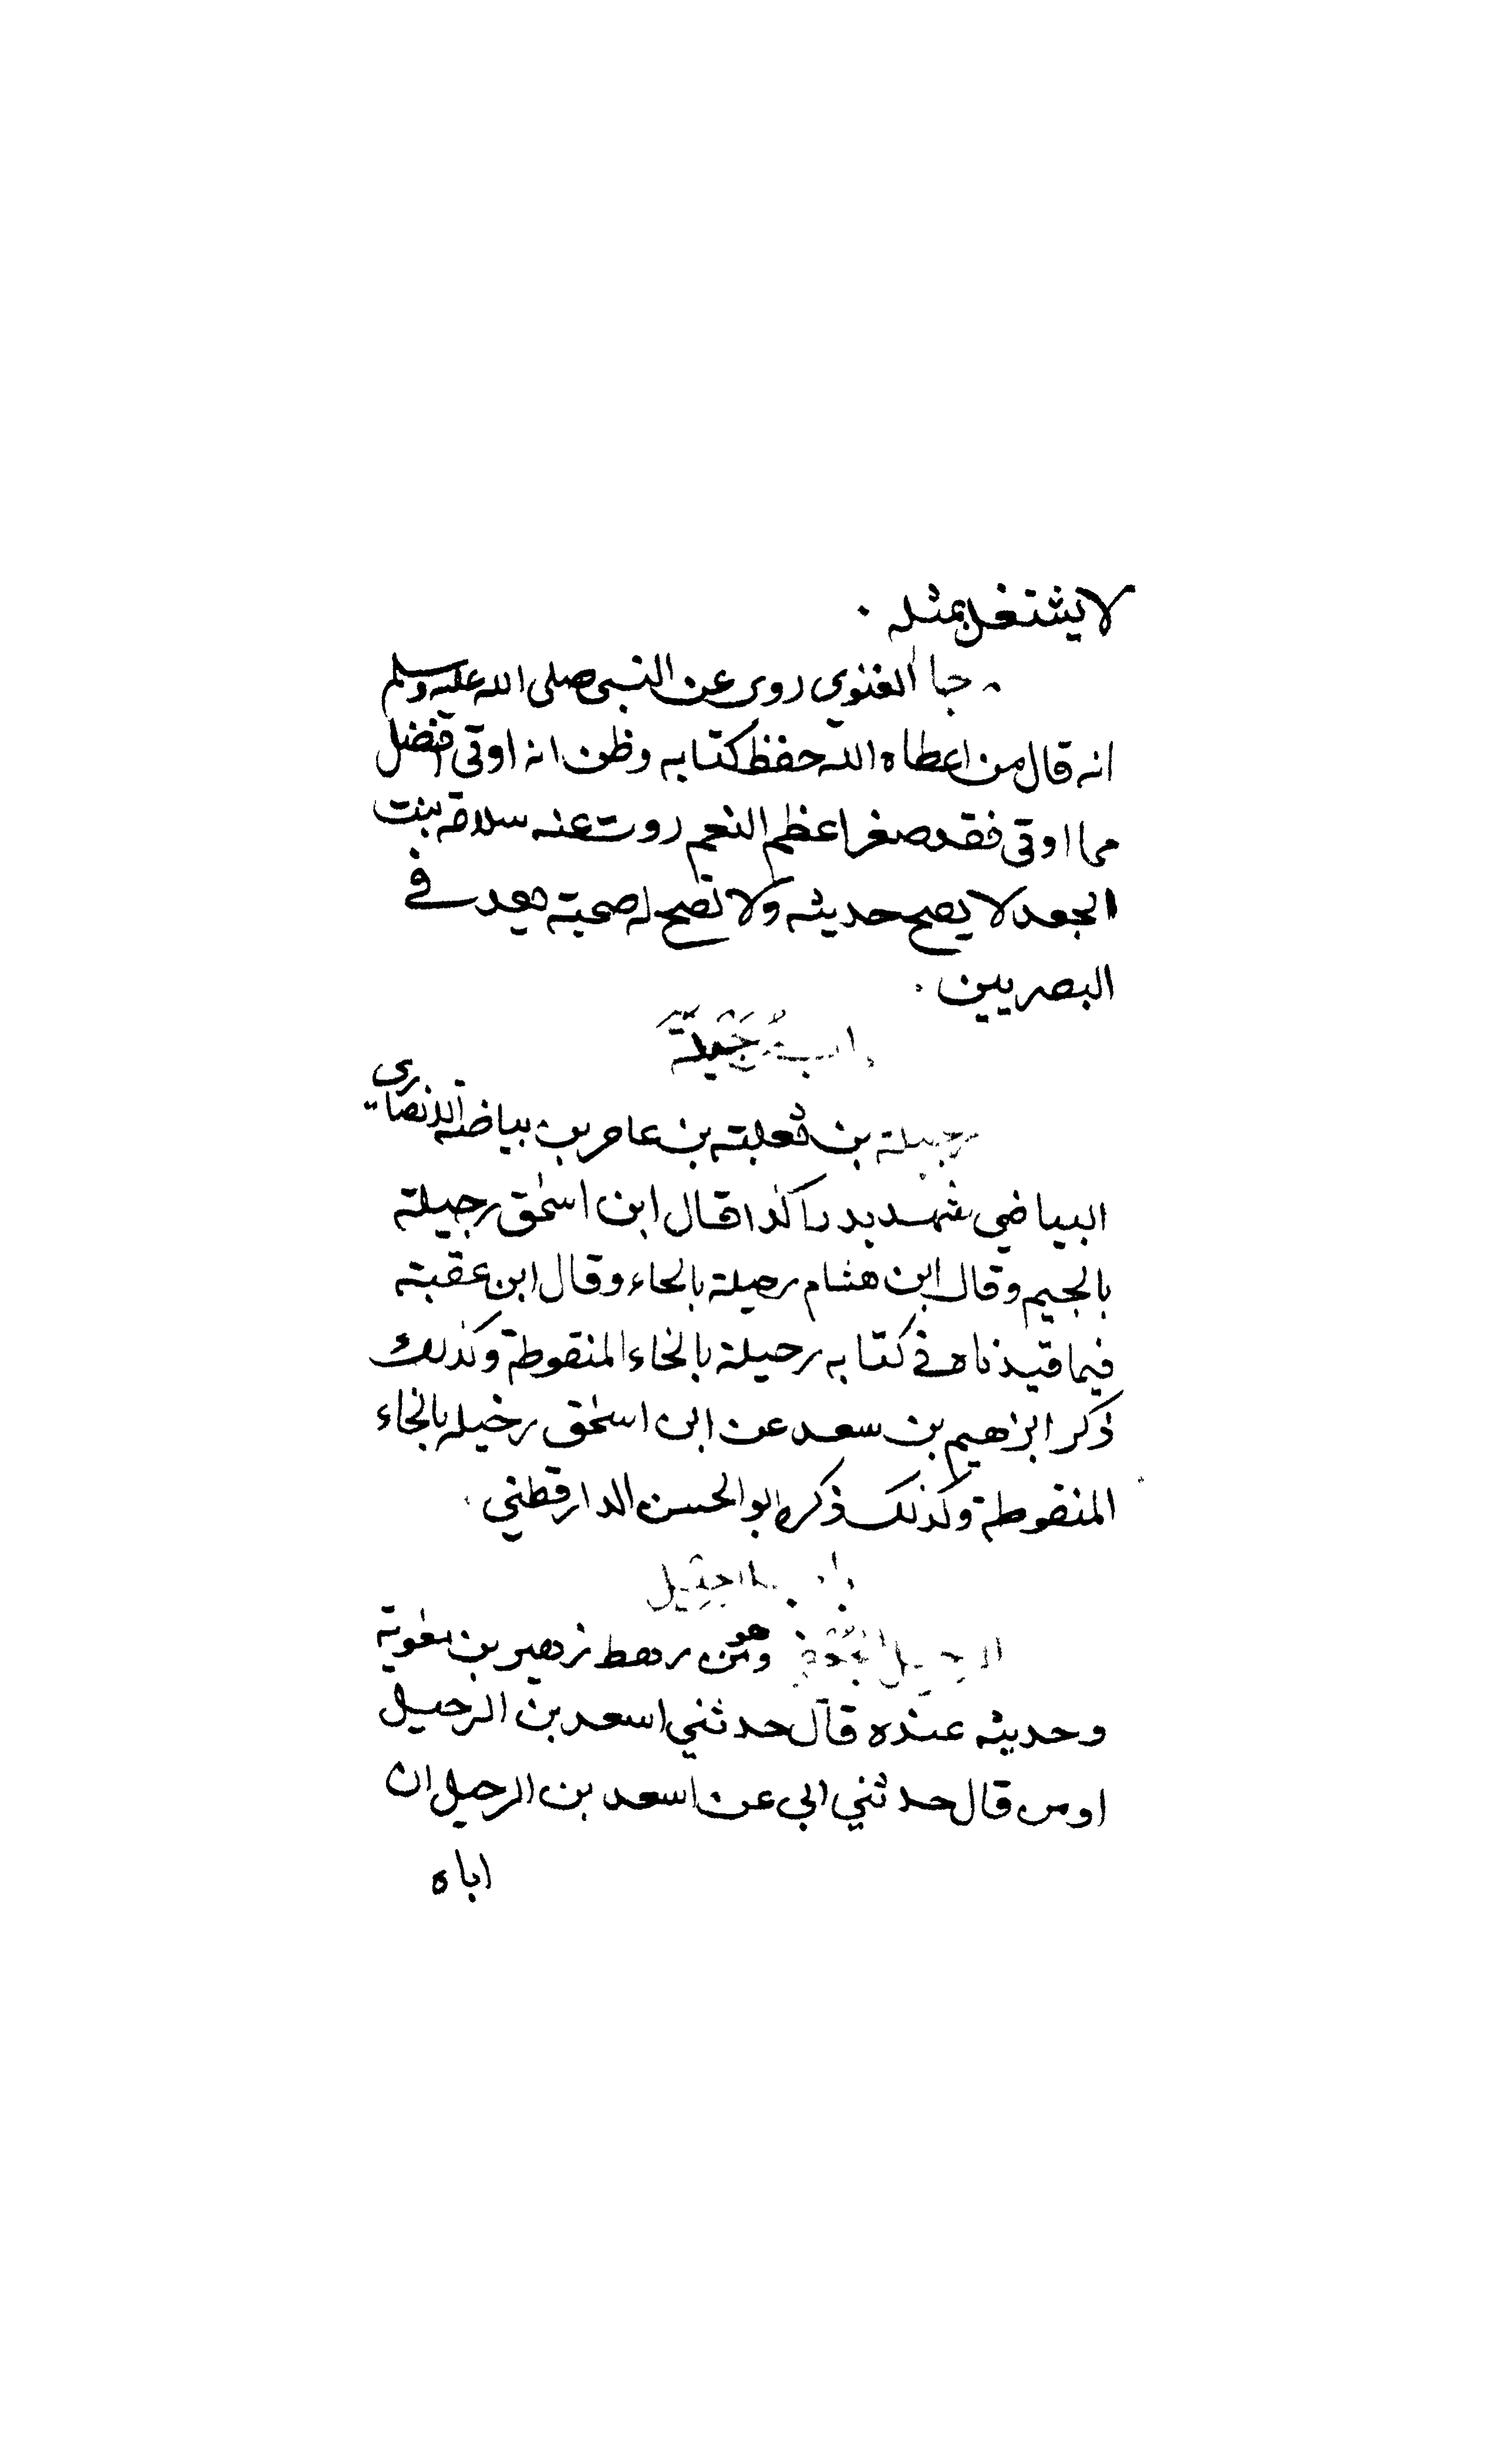 لا يشتغل بمثله .
رجا الغنوي روى عن النبي صلى الله عليه وسلم
انه قال من اعطاه الله حفظ كتابه وظن انه اوتي افضل
مما اوتي فقد صغر اعظم النعم روت عنه سلامة بنت
الجعد لا يصح حديثه ولا تصح له صحبته يعد في
البصريين .
رجيلة
رجيلة بن ثعلبته بن عامر بن بياضه الانصاري
البياضي شهد بدرا كذا قال ابن اسحق رجيلته
بالجيم وقال ابن هشام رحيلة بالحاء وقال ابن عقبته
فيما قيدناه في كتابه رحيلة بالخاء المنقوطة وكذلك
ذكر ابرهيم بن سعد عن ابن اسحق رخيله بالخاء
المنقوطة وكذلك ذكره ابو الحسن الدارقطني .
الرحيل وهو من رهط زهير بن معوية
وحديثه عنده قال حدثني اسعد بن الرحيل
اوس قال حدثني ابي عن اسعد بن الرحيل ان
اباه